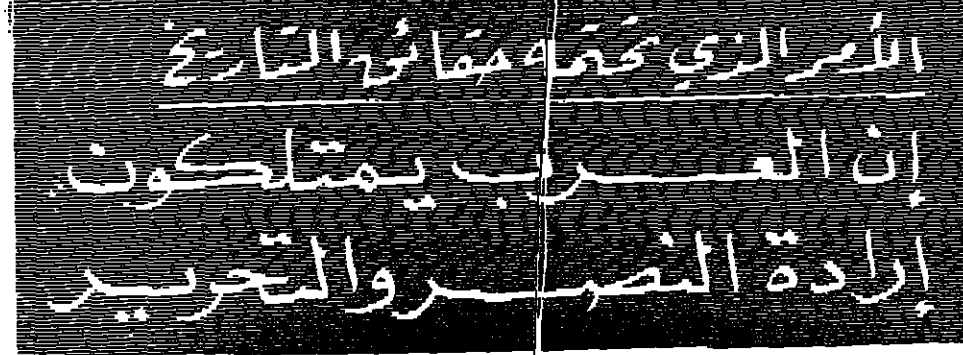 الأمر الذي تحتمه حقائق التاريخ
إن العرب يمتلكون
إرادة النصر والتحرير